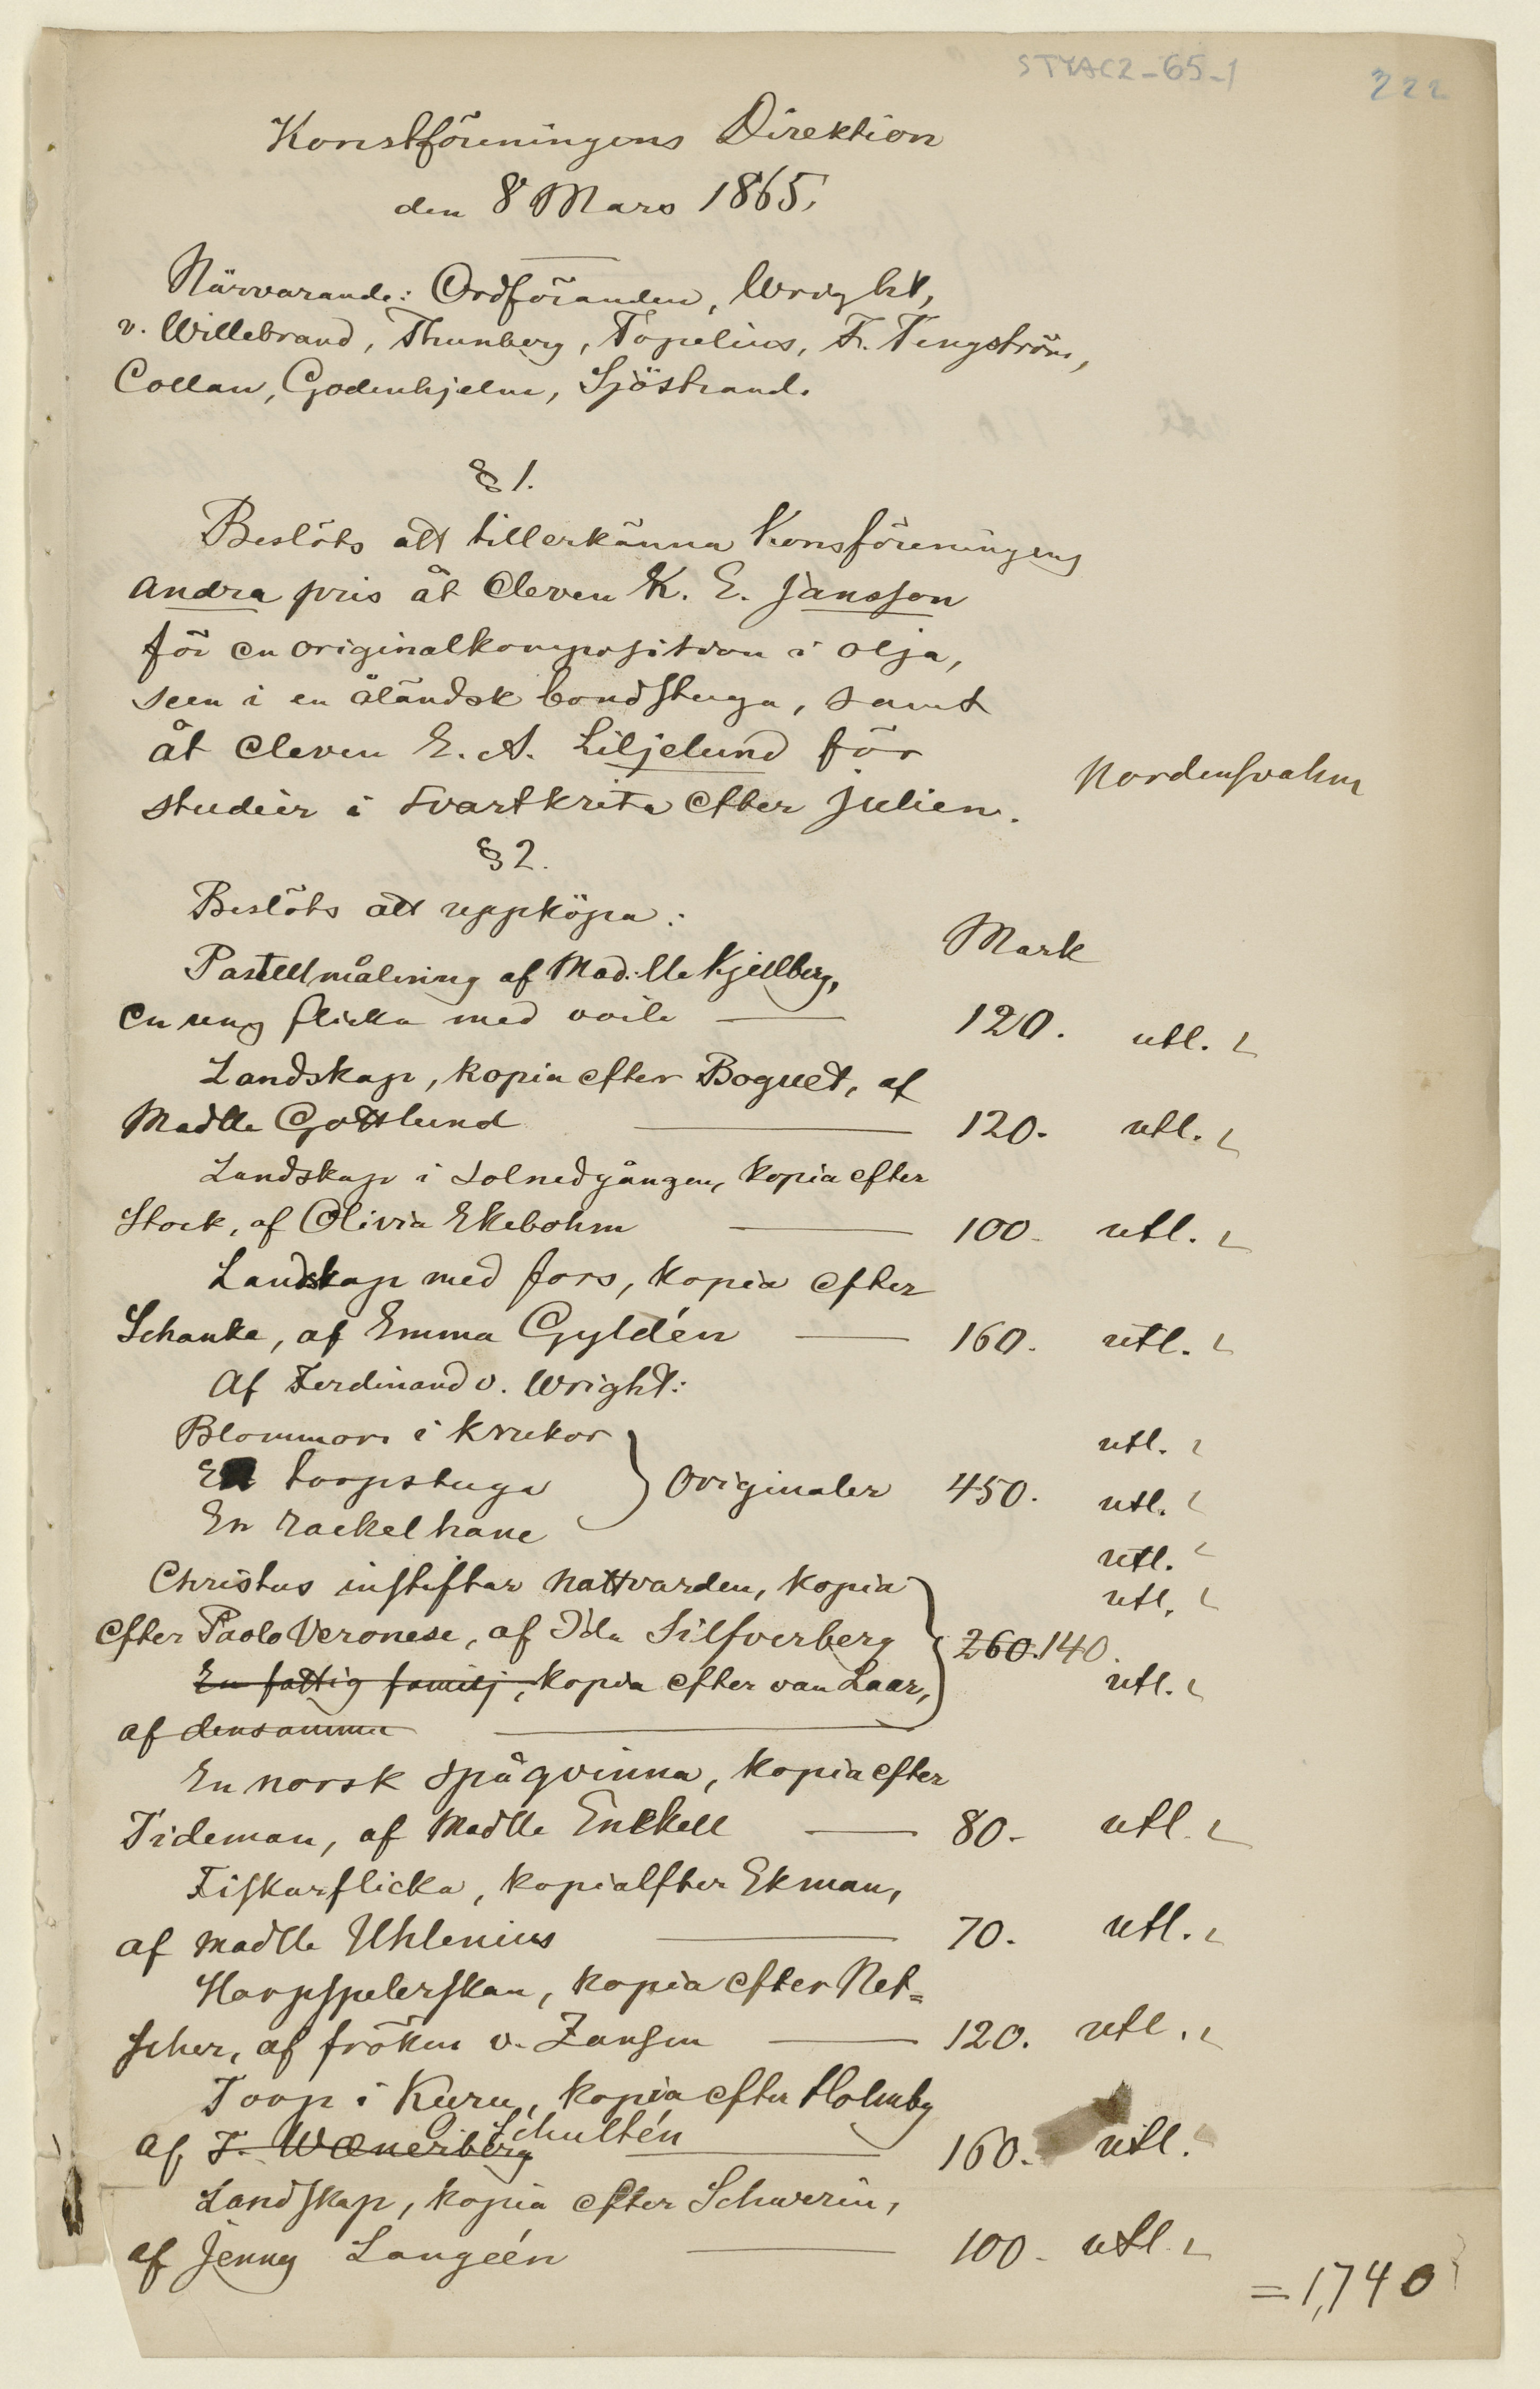 STYAC2-65-1
222
Konstföreningens Direktion
den 8 Mars 1865.
Närvarande: Ordföranden, Wright,
v. Willebrand, Thunberg, Topelius, Fr. Tengström,
Collan, Godenhjelm, Sjöstrand.
§ 1.
Beslöts att tillerkänna Konsföreningens
andra pris åt Eleven K. E. Jansson
för en originalkomposition i olja,
scen i en åländsk bondstuga, samt
åt Eleven E. A. Liljelund för
studier i svartkrita efter Julien.
Nordensvahn
§ 2.
Beslöts att uppköpa:
Mark
Pastellmålning af Mad:lle Kjellberg,
en ung flicka med voile — 120. utl.
Landskap, kopia efter Boguet, af
Madlle Gottlund — 120. utl.
Landskap i solnedgången, kopia efter
Stock, af Olivia Ekebohm — 100. utl.
Landskap med fors, kopia efter
Schanke, af Emma Gyldén — 160. utl.
Af Ferdinand v. Wright:
Blommor i krukor utl.
En torpstuga } Originaler 450. utl.
En rackelhane utl.
Christus instiftar nattvarden, kopia utl.
efter Paolo Veronese, af Ida Silfverberg } 260. 140.
En fattig familj, kopia efter van Laar, utl.
af densamma —
En norsk spåqvinna, kopia efter
Tideman, af Madlle Enckell — 80- utl.
Fiskarflicka, kopia efter Ekman,
af Madlle Uhlenius — 70. utl.
Harpspelerskan, kopia efter Net=
scher, af fröken v. Zansen — 120. utl.
Torp i Kuru, kopia efter Holmby
Schultén
af F. Wænerberg — 160. utl.
Landskap, kopia efter Schwerin,
af Jenny Langéén — 100- utl.
= 1,740